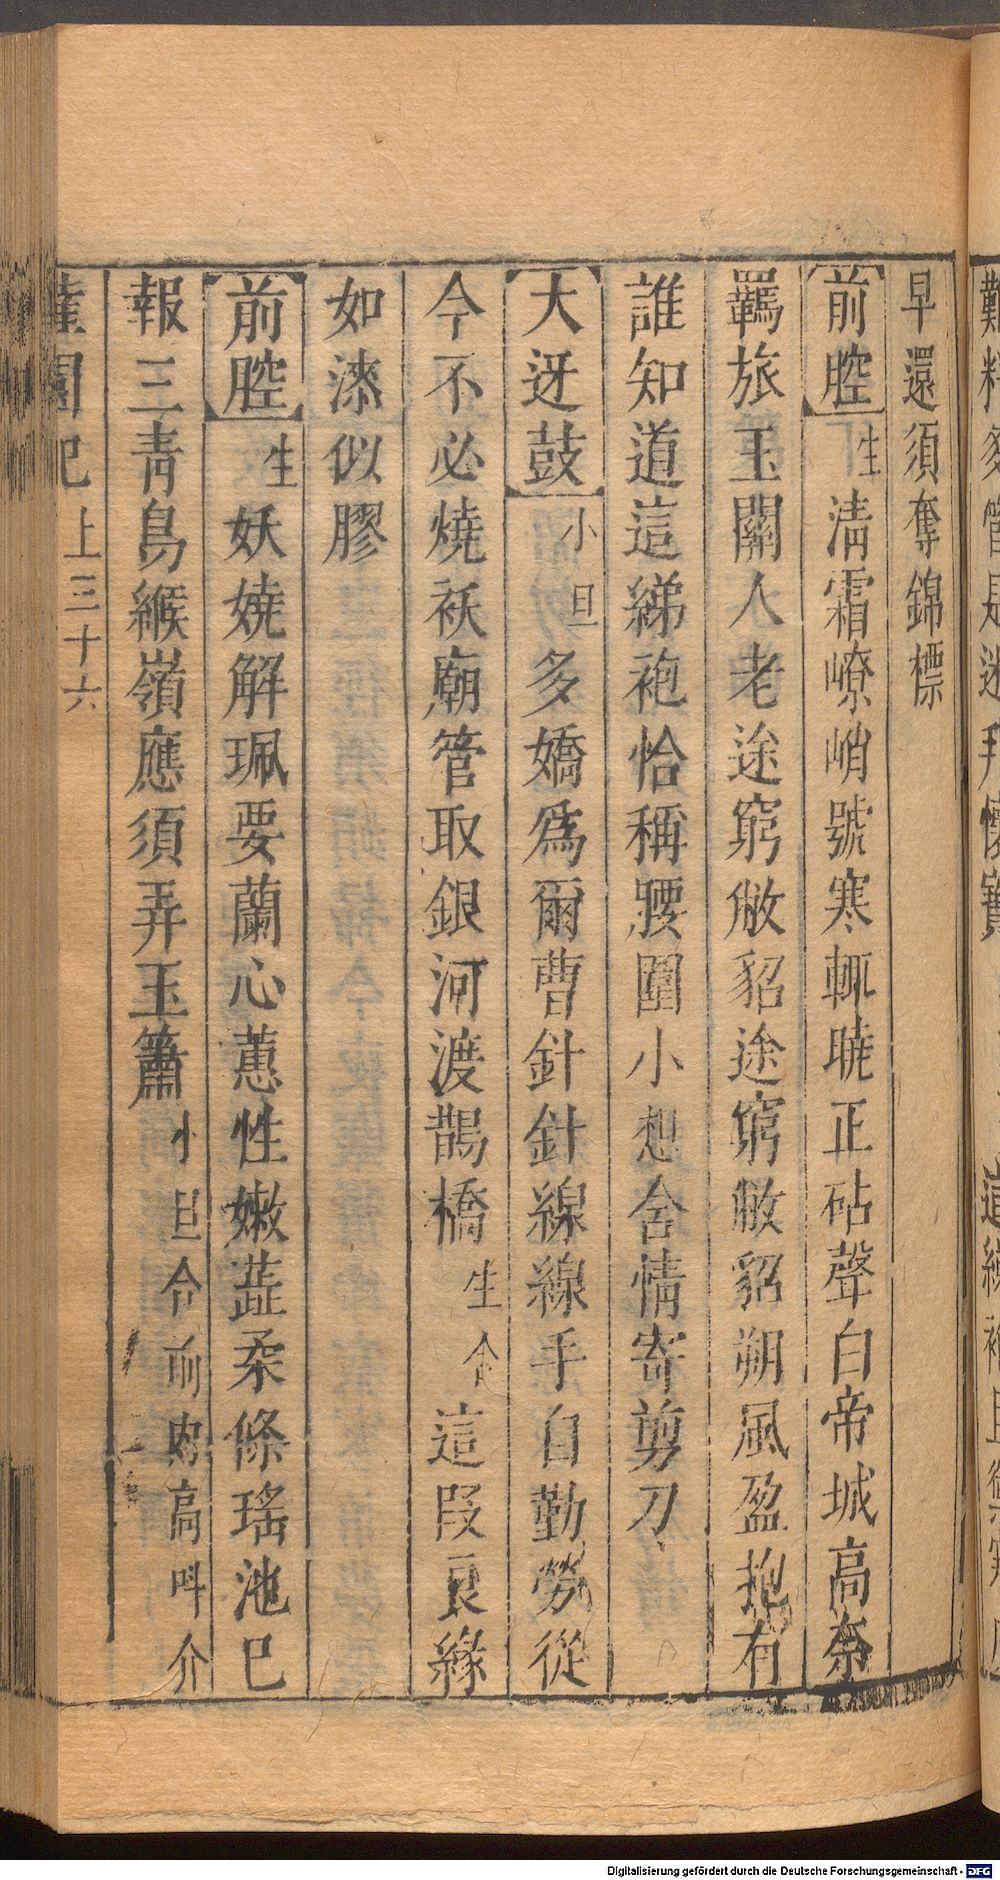 早還須奪錦標
【前腔】生淸霜嶛峭號寒輒曉正砧聲白帝城高奈
羈旅玉關人老途窮敝貂途窮敝貂朔風盈抱有
誰知道這綈袍恰稱腰圍小想含情寄剪刀
【大迓鼓】小旦多嬌爲爾曹針針線線手自勤勞從
今不必燒祅廟管取銀河渡鵲橋生介這段良緣
如漆似膠
【前腔】生妖嬈解珮要蘭心蕙性嫩蕋柔條瑤池已
報三靑鳥緱嶺應須弄玉簫小旦介前内高呌介
園記 上三十六
Digitalisierung gefördert durch die Deutsche Forschungsgemeinschaft - DFG